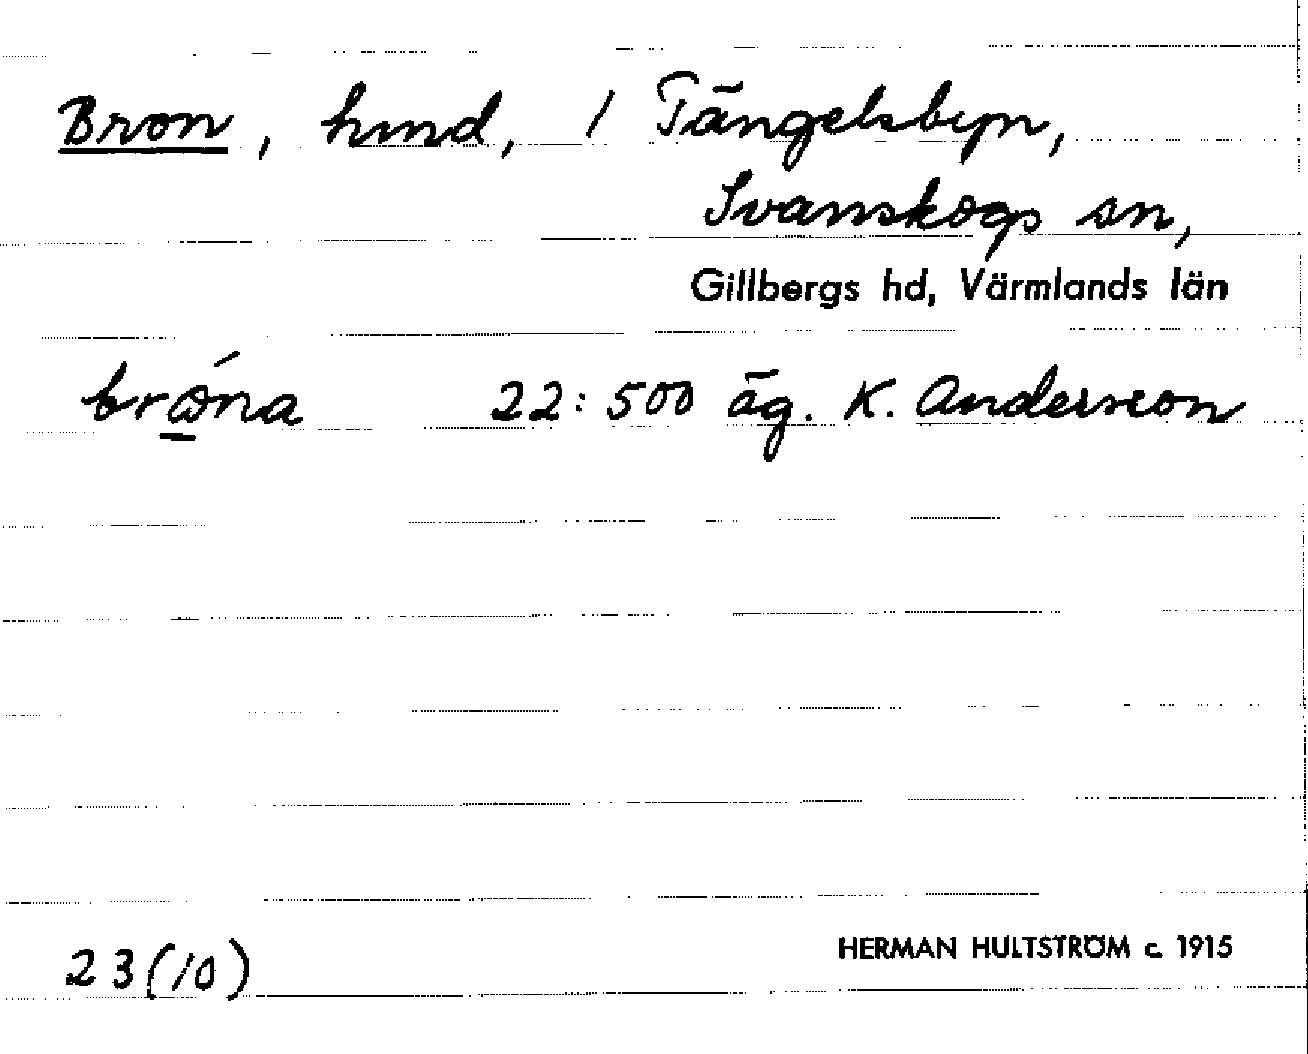 Bron, hmd, / Tängelsbyn,
Svanskogs sn,
Gillbergs hd, Värmlands län
22:500 äg. K. Andersson
23(10)
HERMAN HULTSTRÖM c. 1915